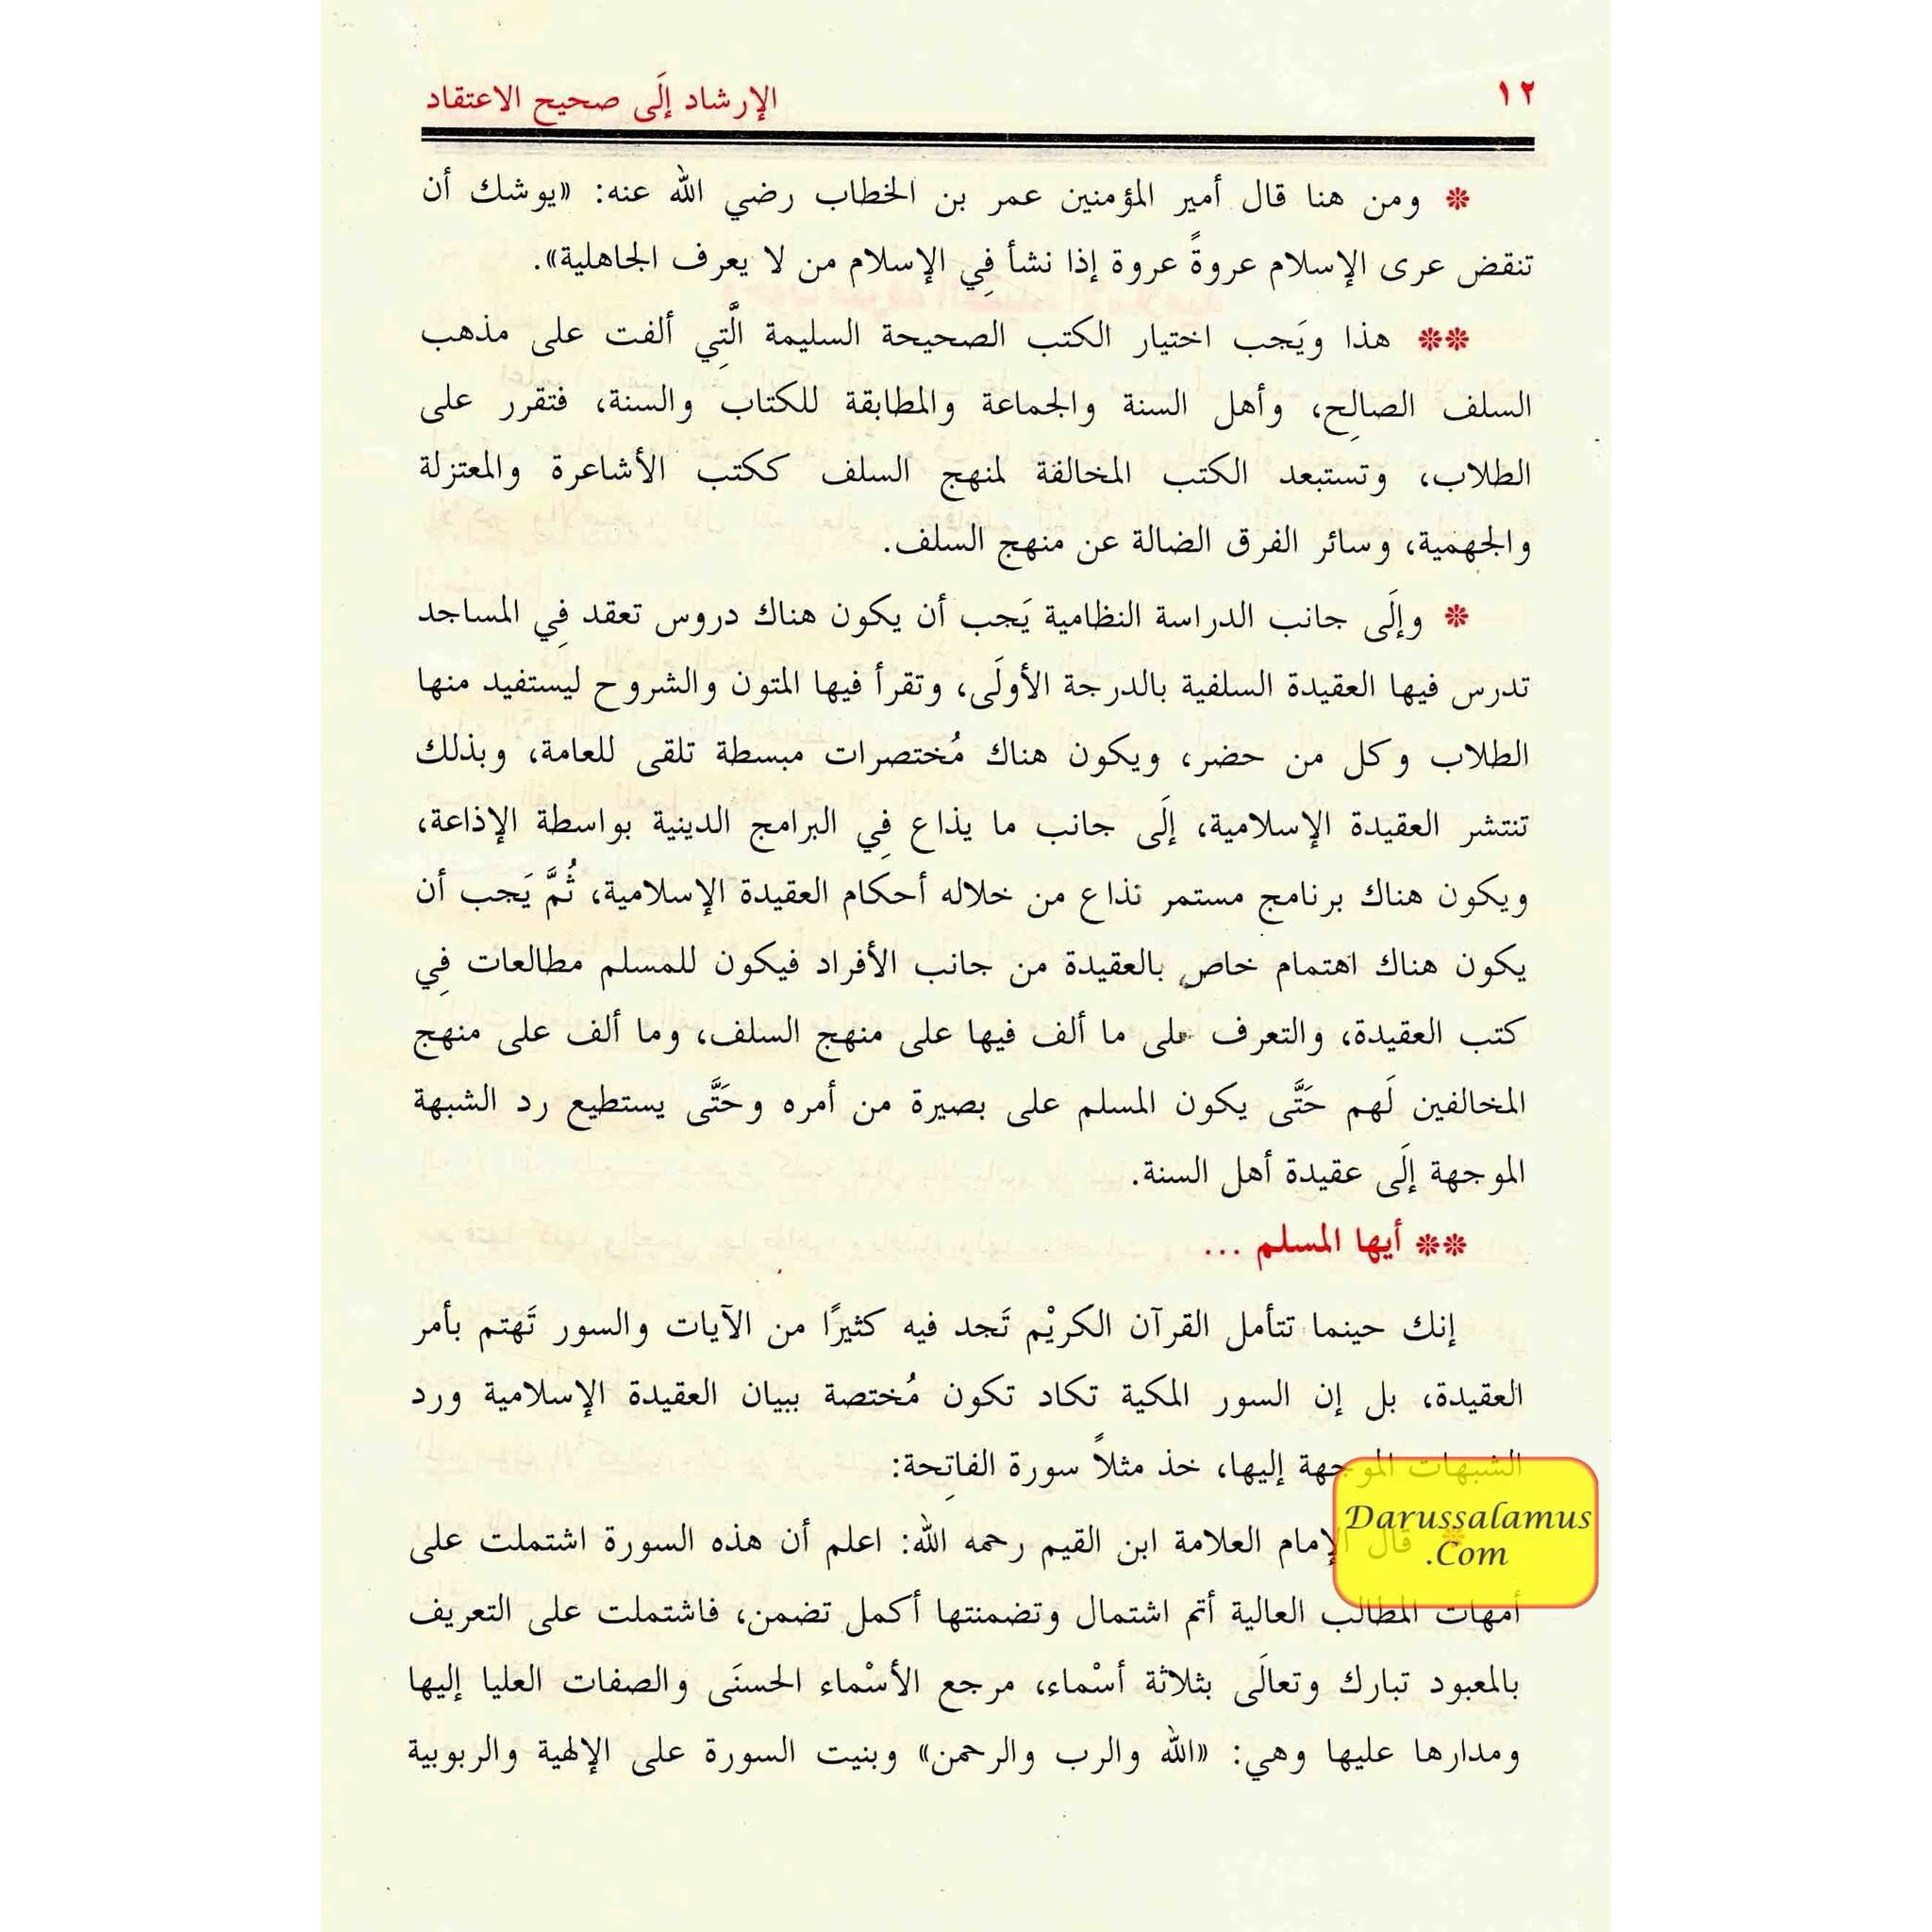 ١٢
الإرشاد إلَى صحيح الاعتقاد
❊ ومن هنا قال أمير المؤمنين عمر بن الخطاب رضي الله عنه: «يوشك أن
تنقض عرى الإسلام عروةً عروة إذا نشأ فِي الإسلام من لا يعرف الجاهلية».
❊❊ هذا ويَجب اختيار الكتب الصحيحة السليمة الَّتِي ألفت على مذهب
السلف الصالِح، وأهل السنة والجماعة والمطابقة للكتاب والسنة، فتقرر على
الطلاب، وتستبعد الكتب المخالفة لمنهج السلف ككتب الأشاعرة والمعتزلة
والجهمية، وسائر الفرق الضالة عن منهج السلف.
❊ وإلَى جانب الدراسة النظامية يَجب أن يكون هناك دروس تعقد فِي المساجد
تدرس فيها العقيدة السلفية بالدرجة الأولَى، وتقرأ فيها المتون والشروح ليستفيد منها
الطلاب وكل من حضر، ويكون هناك مُختصرات مبسطة تلقى للعامة، وبذلك
تنتشر العقيدة الإسلامية، إلَى جانب ما يذاع فِي البرامج الدينية بواسطة الإذاعة،
ويكون هناك برنامج مستمر تذاع من خلاله أحكام العقيدة الإسلامية، ثُمَّ يَجب أن
يكون هناك اهتمام خاص بالعقيدة من جانب الأفراد فيكون للمسلم مطالعات فِي
كتب العقيدة، والتعرف على ما ألف فيها على منهج السلف، وما ألف على منهج
المخالفين لَهم حَتَّى يكون المسلم على بصيرة من أمره وحَتَّى يستطيع رد الشبهة
الموجهة إلَى عقيدة أهل السنة.
❊❊ أيها المسلم ...
إنك حينما تتأمل القرآن الكريْم تَجد فيه كثيرًا من الآيات والسور تَهتم بأمر
العقيدة، بل إن السور المكية تكاد تكون مُختصة ببيان العقيدة الإسلامية ورد
الشبهات الموجهة إليها، خذ مثلاً سورة الفاتِحة:
❊ قال الإمام العلامة ابن القيم رحمه الله: اعلم أن هذه السورة اشتملت على
أمهات المطالب العالية أتم اشتمال وتضمنتها أكمل تضمن، فاشتملت على التعريف
بالمعبود تبارك وتعالَى بثلاثة أسْماء، مرجع الأسْماء الحسنَى والصفات العليا إليها
ومدارها عليها وهي: «الله والرب والرحمن» وبنيت السورة على الإلهية والربوبية
Darussalamus
.Com